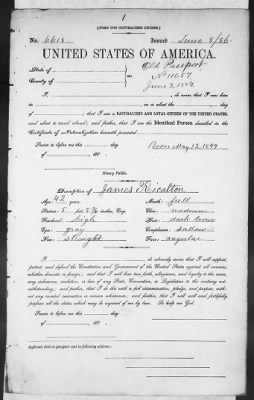 [FORM FOR NATURALIZED CITIZEN.]
No. 6618 Issued June 8/86
UNITED STATES OF AMERICA.
State of Old Passport
County of No 11657
June 3, 1884
I, do swear that I was born in
on or about the day
of , that I am a NATURALIZED AND LOYAL CITIZEN OF THE UNITED STATES,
and about to travel abroad; and further, that I am the Identical Person described in the
Certificate of Naturalization herewith presented.
Sworn to before me this day Born May 13, 1844
of 188 .
Notary Public.
Description of James Ricalton
Age: 42 years Mouth: full
Stature: 5 feet, inches, Eng. Chin: medium
Forehead: high Hair: dark brown
Eyes: gray Complexion: sallow
Nose: straight Face: angular
I, , do solemnly swear that I will support,
protect, and defend the Constitution and Government of the United States against all enemies,
whether domestic or foreign; and that I will bear true faith, allegiance, and loyalty to the same,
any ordinance, resolution, or law of any State, Convention, or Legislature to the contrary not-
withstanding; and further, that I do this with a full determination, pledge, and purpose, without
any mental reservation or evasion whatsoever; and further, that I will well and faithfully
perform all the duties which may be required of me by law: So help me God.
Sworn to before me this day
of , 188 .
Applicant desires passport sent to following address: